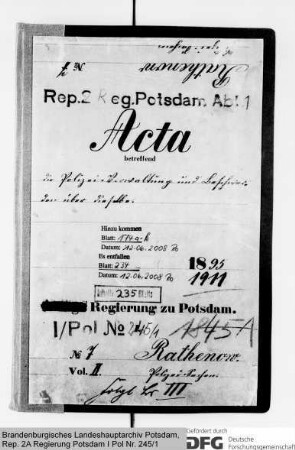 Rathenow
№ 7
Rep. 2 Reg. Potsdam Abt. 1
Acta
betreffend
die Polizei-Verwaltung und Beschwer-
den über dieselbe.
Hinzu kommen
Blatt: 174a-k
Datum: 12.06.2008
Es entfallen
Blatt: 234
Datum: 12.06.2008
1895
1911
235
Regierung zu Potsdam.
I/Pol № 245/1
1845A
№ 7 Rathenow.
Vol. II Polizei-Sachen
folgt Vol. III
Brandenburgisches Landeshauptarchiv Potsdam,
Rep. 2A Regierung Potsdam I Pol Nr. 245/1
Gefördert durch
DFG Deutsche
Forschungsgemeinschaft